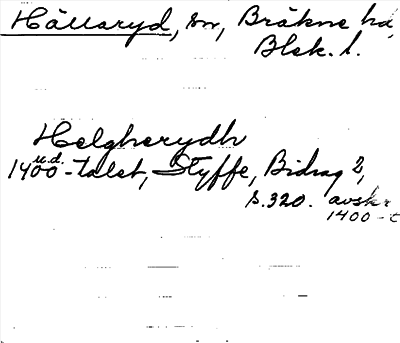 Hällaryd, sn, Bräkne hd,
Blek. l.
Helgherydh
u.d.
1400-talet, Styffe, Bidrag 2,
s. 320. avskr
1400-t